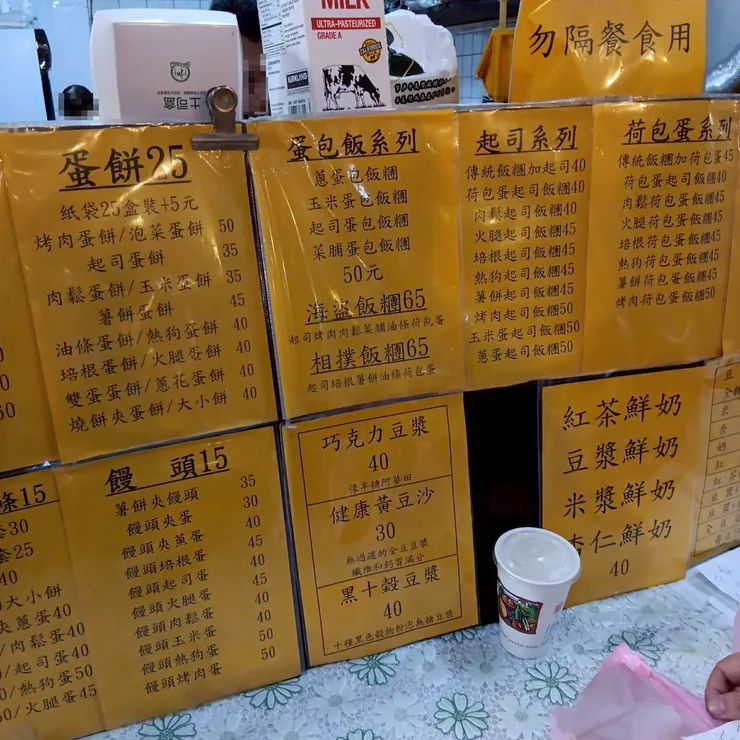 MILK
ULTRA-PASTEURIZED
GRADE A
KIRKLAND
土司盒
勿隔餐食用
蛋餅25
紙袋25盒裝+5元
烤肉蛋餅/泡菜蛋餅 50
起司蛋餅 35
肉鬆蛋餅/玉米蛋餅 35
薯餅蛋餅 45
油條蛋餅/熱狗蛋餅 40
培根蛋餅/火腿蛋餅 40
雙蛋蛋餅/蔥花蛋餅 40
燒餅夾蛋餅/大小餅 40
蛋包飯系列
蔥蛋包飯糰
玉米蛋包飯糰
起司蛋包飯糰
菜脯蛋包飯糰
50元
海盜飯糰65
起司烤肉肉鬆菜脯油條荷包蛋
相撲飯糰65
起司培根薯餅油條荷包蛋
起司系列
傳統飯糰加起司40
荷包蛋起司飯糰40
肉鬆起司飯糰45
火腿起司飯糰45
培根起司飯糰45
熱狗起司飯糰45
薯餅起司飯糰45
烤肉起司飯糰50
玉米蛋起司飯糰50
蔥蛋起司飯糰50
荷包蛋系列
傳統飯糰加荷包蛋45
荷包起司蛋飯糰40
肉鬆荷包蛋飯糰45
火腿荷包蛋飯糰45
培根荷包蛋飯糰45
熱狗荷包蛋飯糰45
薯餅荷包蛋飯糰45
烤肉荷包蛋飯糰50
條15
套30
套25
40
大小餅
夾蔥蛋 40
/肉鬆蛋40
/起司蛋40
/熱狗蛋50
/火腿蛋45
饅頭15
薯餅夾饅頭 35
饅頭夾蛋 30
饅頭夾蔥蛋 40
饅頭培根蛋 40
饅頭起司蛋 40
饅頭火腿蛋 40
饅頭肉鬆蛋 40
饅頭玉米蛋 50
饅頭熱狗蛋 50
饅頭烤肉蛋 50
巧克力豆漿
40
像半糖阿華田
健康黃豆沙
30
無過濾的全豆豆漿
纖維和鈣質滿分
黑十穀豆漿
40
十種黑色穀物粉泡無糖豆漿
紅茶鮮奶
豆漿鮮奶
米漿鮮奶
杏仁鮮奶
40